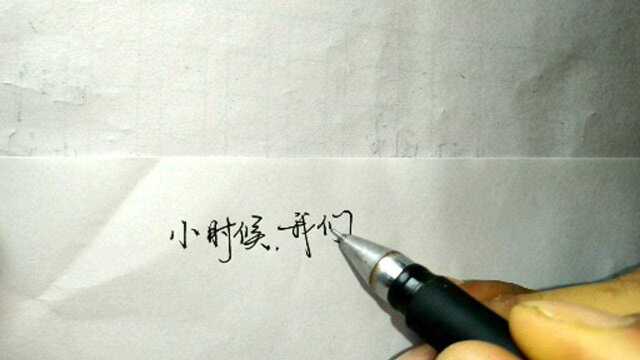 小时候,我们